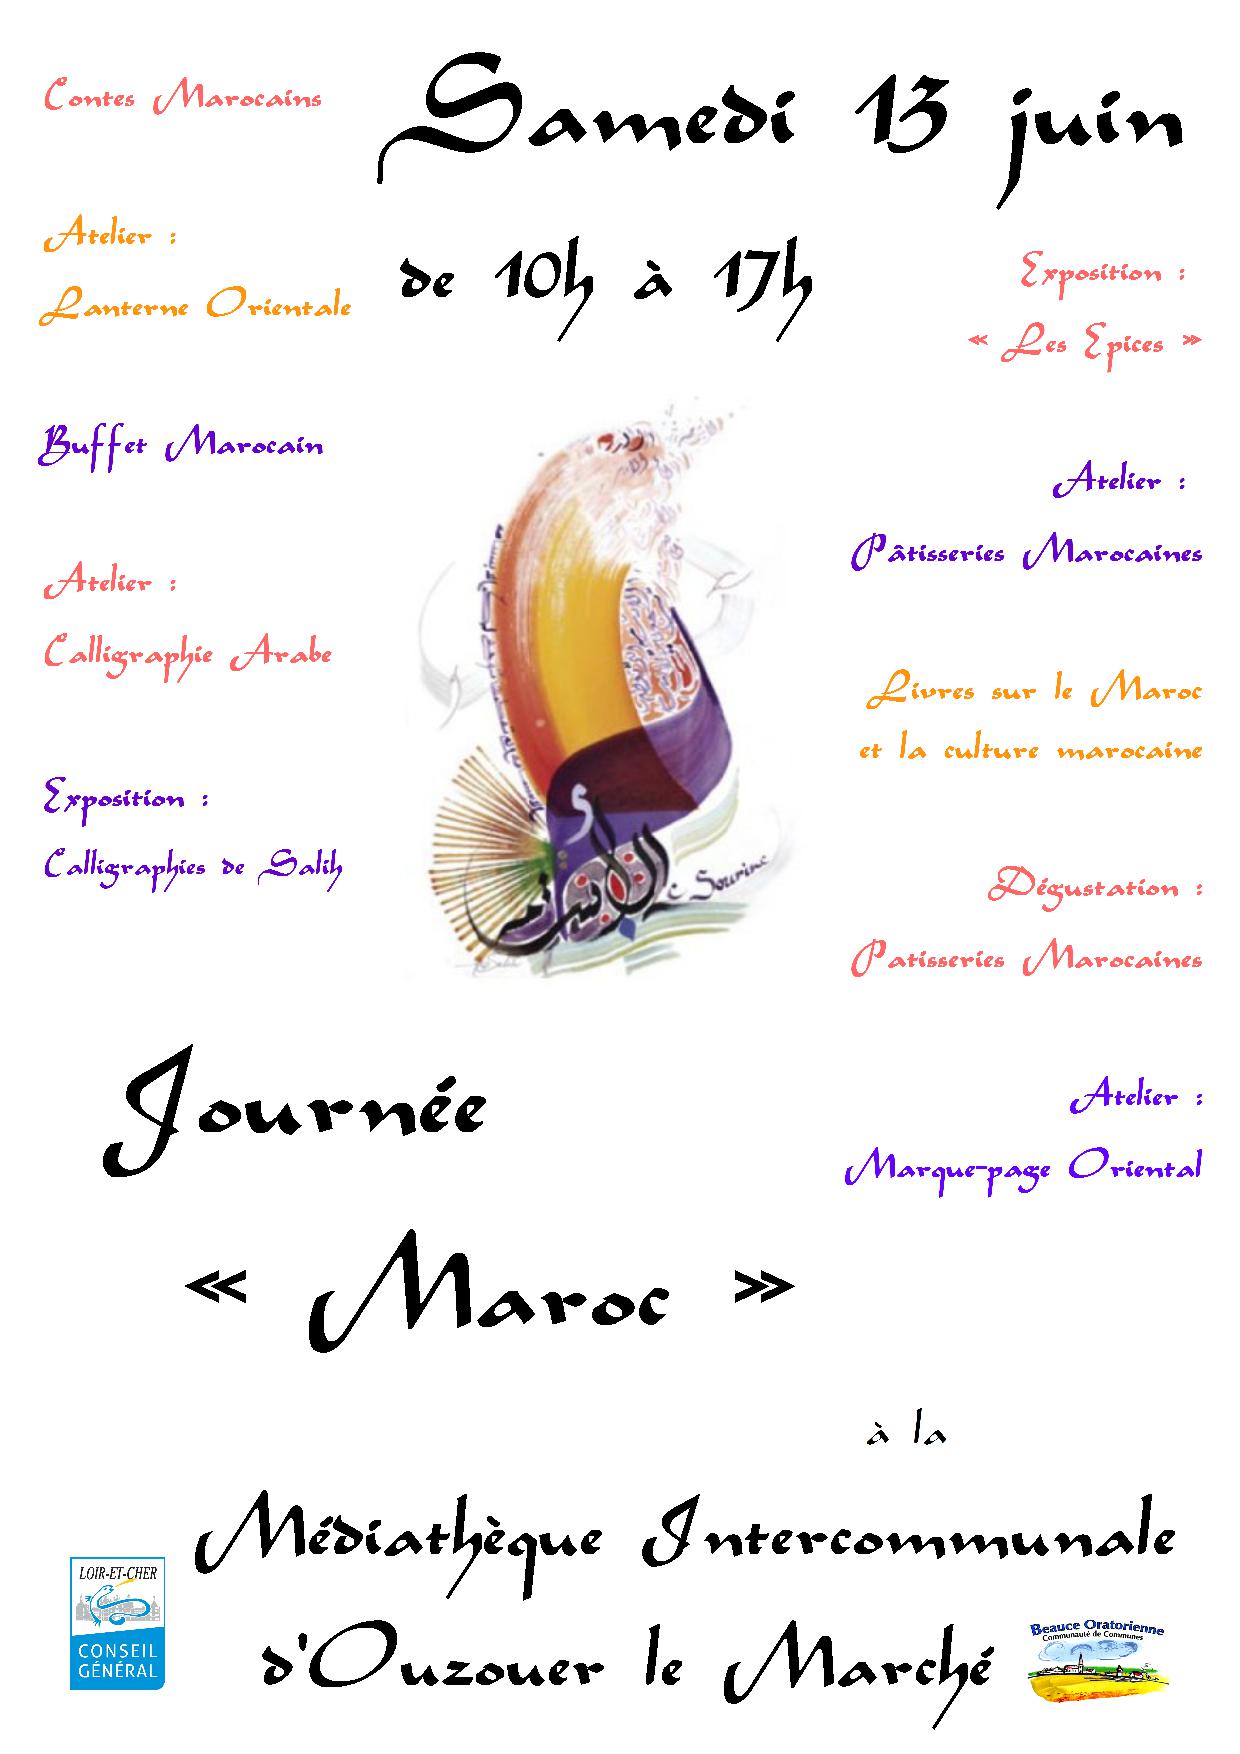 Samedi 13 juin
de 10h à 17h
Contes Marocains
Atelier :
Lanterne Orientale
Buffet Marocain
Atelier :
Calligraphie Arabe
Exposition :
Calligraphies de Salih
Exposition :
« Les Epices »
Atelier :
Pâtisseries Marocaines
Livres sur le Maroc
et la culture marocaine
Dégustation :
Patisseries Marocaines
Atelier :
Marque-page Oriental
Journée
« Maroc »
à la
Médiathèque Intercommunale
d'Ouzouer le Marché
LOIR-ET-CHER
CONSEIL
GÉNÉRAL
Beauce Oratorienne
Communauté de Communes